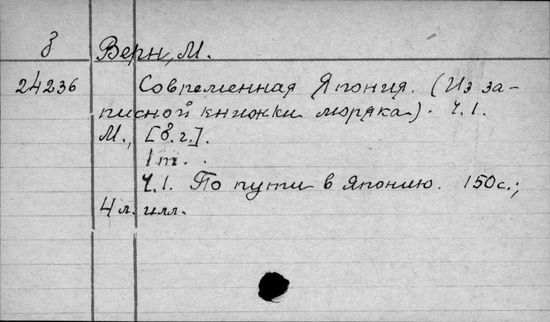 З Верн, М.
24236 Современная Япония. (Из за-
писной книжки моряка). Ч.1.
М., [б.г.].
1 т.
Ч.1. По пути в Японию. 150с.;
4 л. илл.